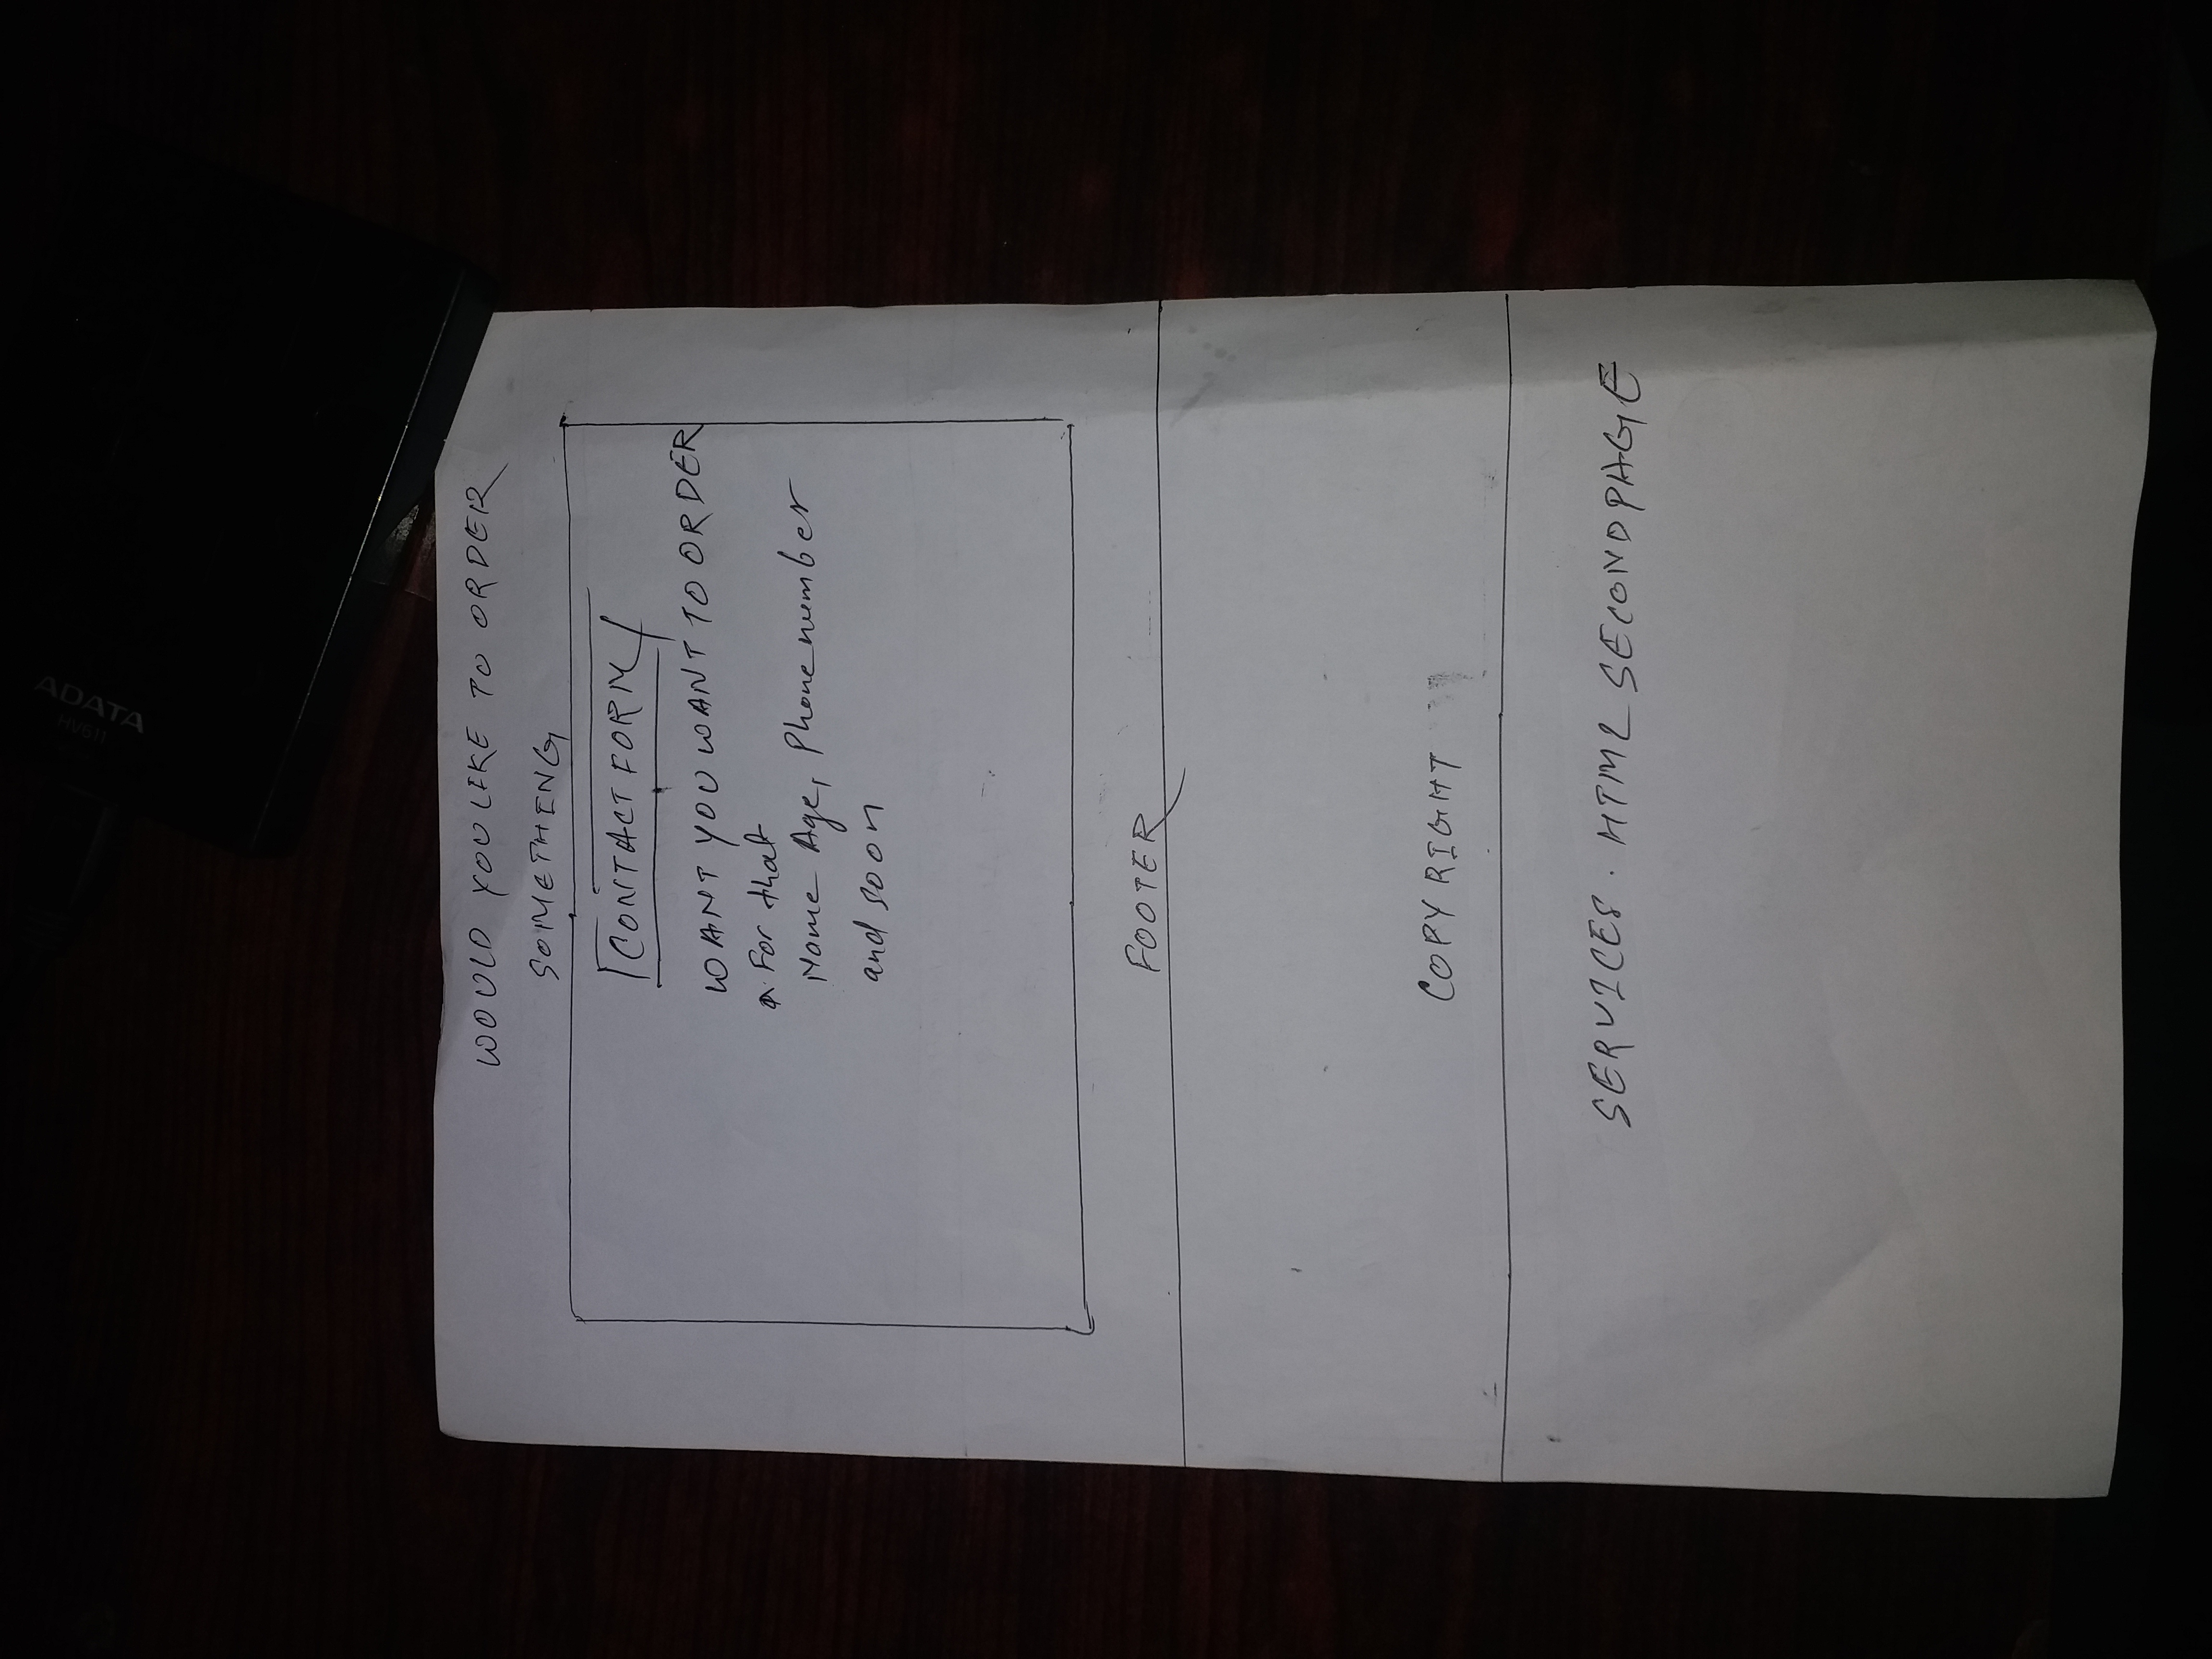 ADATA
HV611
WOULD YOU LIKE TO ORDER
SOMETHING
CONTACT FORM
WANT YOU WANT TO ORDER
For that
Name Age, Phone number
and soon
FOOTER
COPY RIGHT
SERVICES. HTML SECOND PAGE